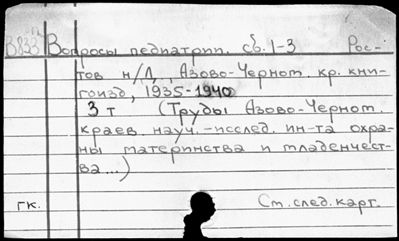 В833 Вопросы педиатрии. сб. 1-3 Рос-
тов н/Д, Азово-Черном. кр. кни-
гоизд, 1935-1940
3 т (Труды Азово-Черном.
краев. науч.-исслед. ин-та охра-
ны материнства и младенчест-
ва...)
гк. См. след. карт.